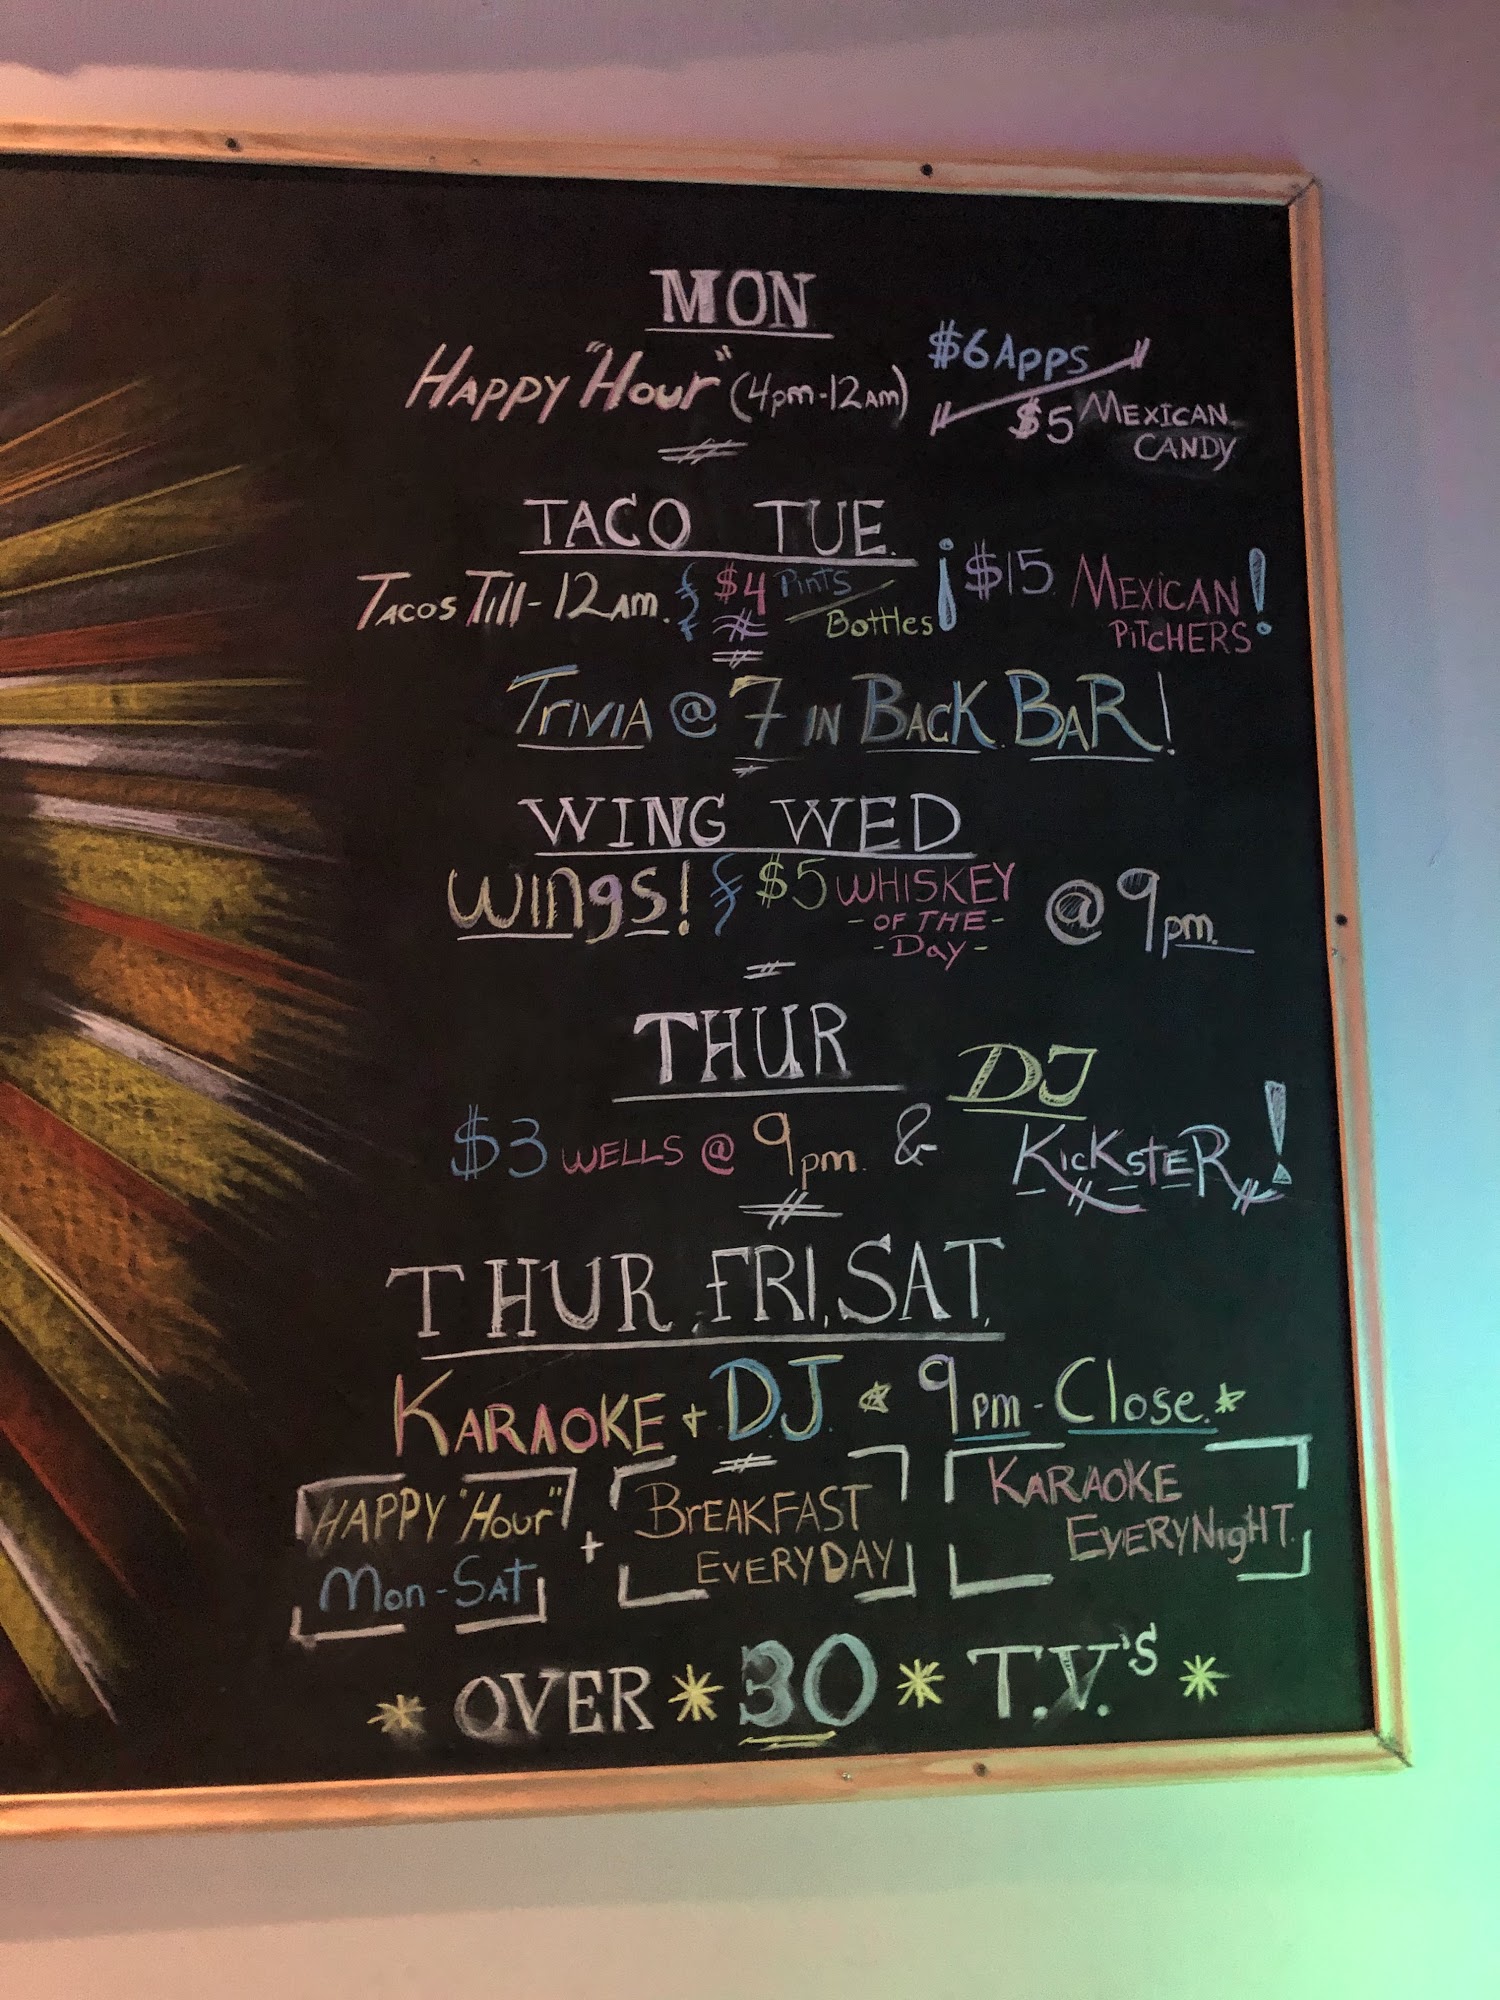 MON
HAPPY "HOUR" (4PM-12AM) $6 APPS
$5 MEXICAN
CANDY
TACO TUE.
TACOS TILL-12AM. & $4 Pints Bottles ¡$15 MEXICAN PITCHERS!
TRIVIA @ 7 IN BACK BAR!
WING WED
WINgS! & $5 WHISKEY -OF THE- -Day- @ 9pm.
THUR
$3 WELLS @ 9pm. & DJ KICKSTER!
THUR, FRI, SAT.
KARAOKE + DJ. 9pm-Close.
HAPPY "Hour" Mon-SAT + BREAKFAST EVERYDAY KARAOKE EVERYNigHT.
* OVER * 30 * T.V.'S *